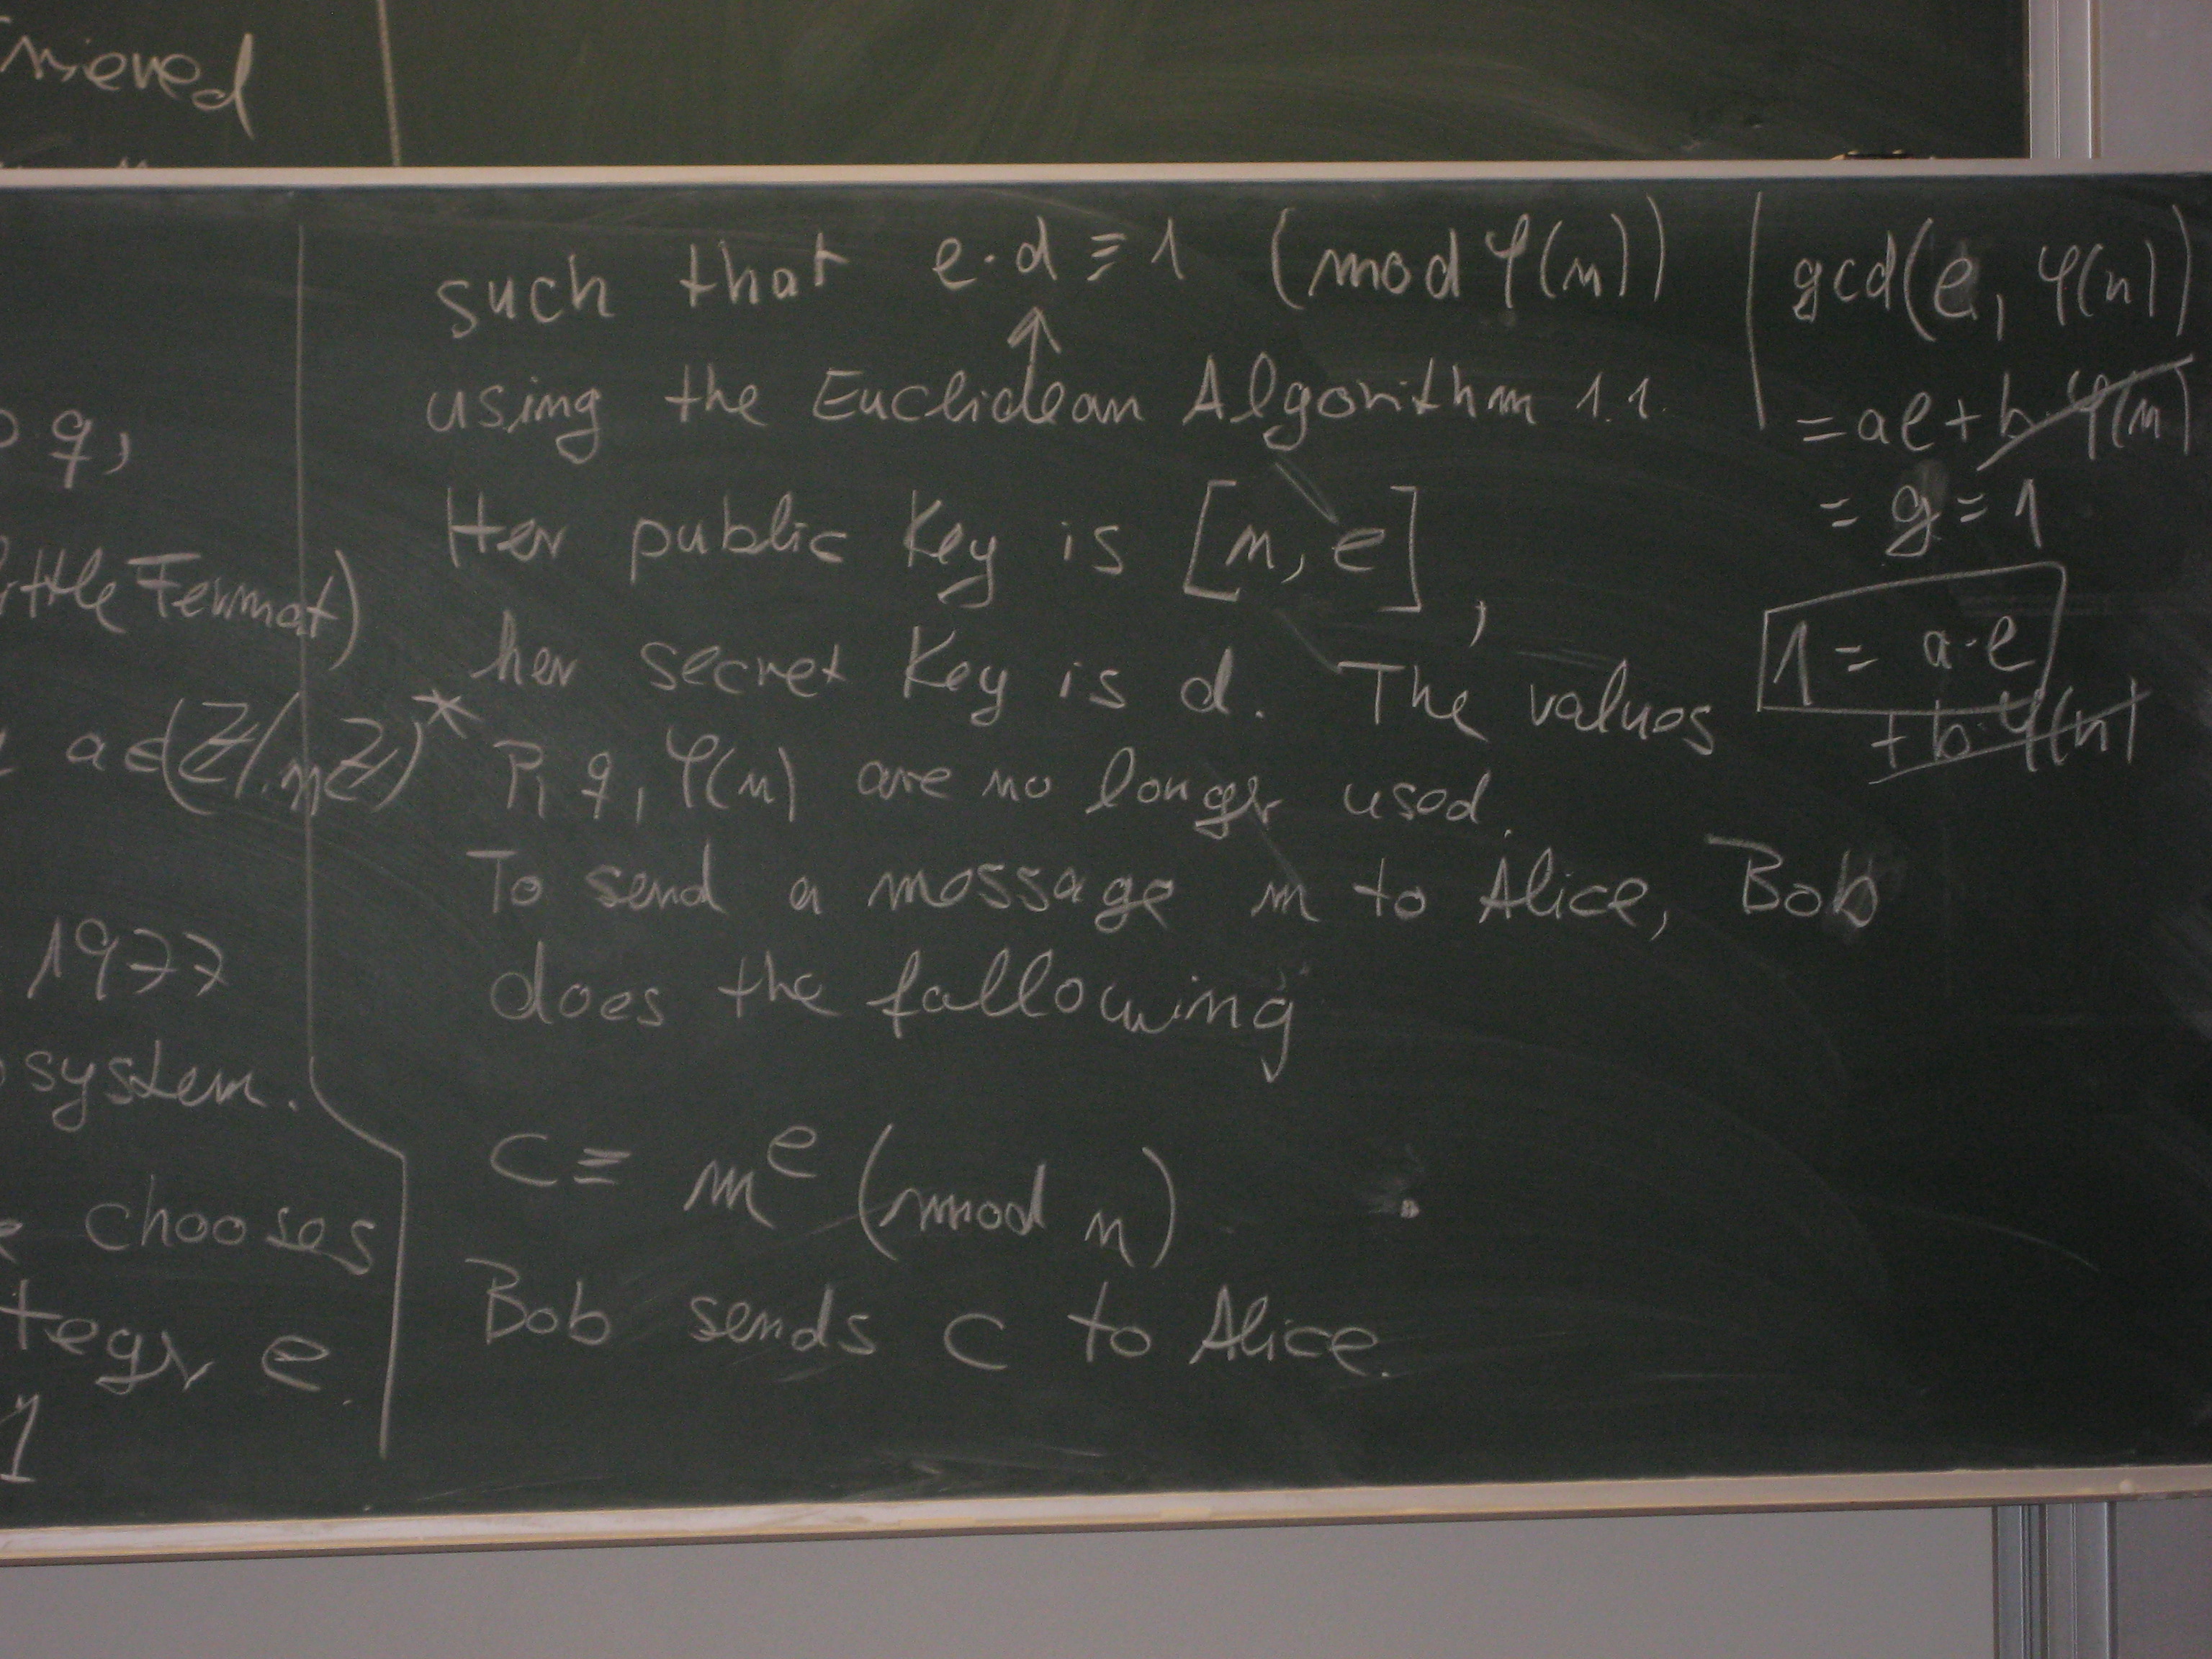 rieved
q,
little Fermat)
a ∈ (ℤ/nℤ)*
1977
system.
chooses
teger e.
1
such that e·d ≡ 1 (mod φ(n))
↑
using the Euclidean Algorithm 1.1.
Her public Key is [n, e],
her secret Key is d. The values
p, q, φ(n) are no longer used.
To send a message m to Alice, Bob
does the following
C ≡ m^e (mod n)
Bob sends C to Alice.
gcd(e, φ(n))
= ae + b·φ(n)
= g = 1
1 = a·e
+ b·φ(n)